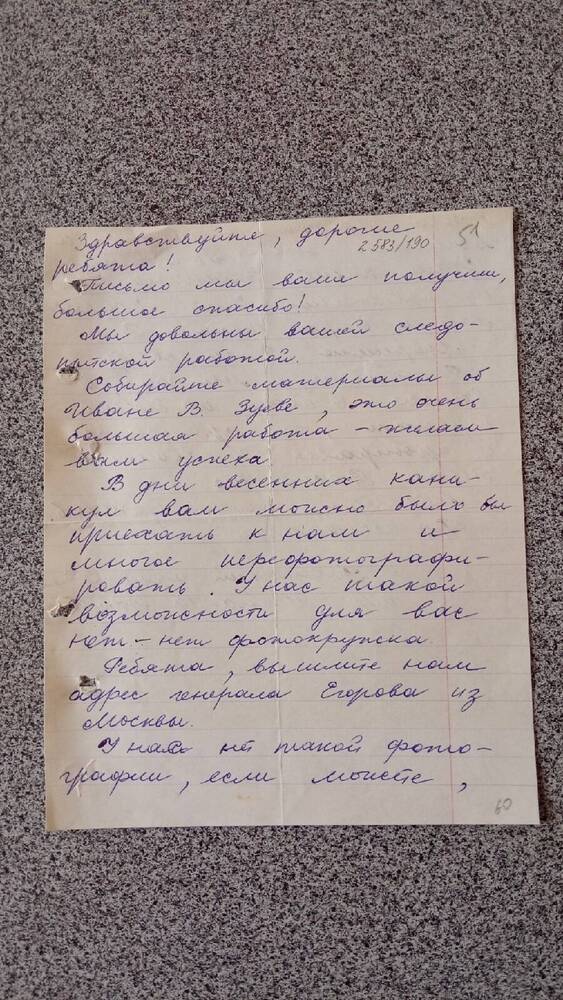 Здравствуйте, дорогие
2583/190
51
ребята!
Письмо мы ваше получили,
большое спасибо!
Мы довольны вашей следо-
пытской работой.
Собирайте материалы об
Иване В. Зуеве, это очень
большая работа - желаем
вам успеха
В дни весенних кани-
кул вам можно было бы
приехать к нам и
многое перефотографи-
ровать. У нас такой
возможности для вас
нет - нет фотокружка.
Ребята, вышлите нам
адрес генерала Егорова из
Москвы.
У нас нет такой фото-
графии, если можете,
60